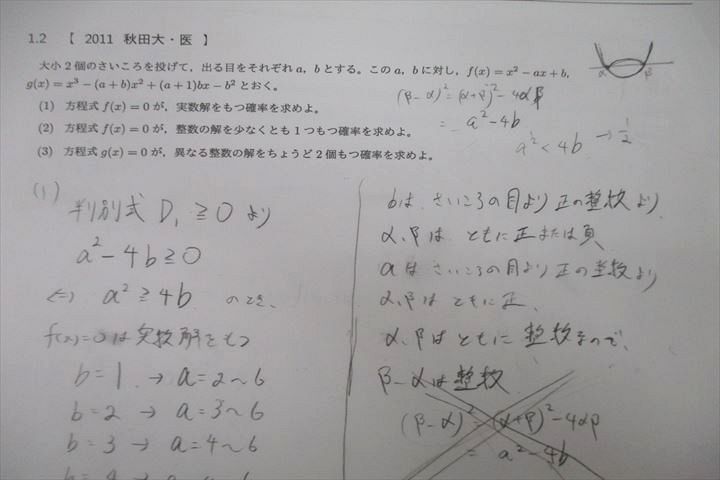 1.2 【 2011 秋田大・医 】
大小2個のさいころを投げて,出る目をそれぞれ a, b とする。この a, b に対し, f(x) = x² − ax + b,
g(x) = x³ − (a + b)x² + (a + 1)bx − b² とおく。
(1) 方程式 f(x) = 0 が,実数解をもつ確率を求めよ。
(2) 方程式 f(x) = 0 が,整数の解を少なくとも1つもつ確率を求めよ。
(3) 方程式 g(x) = 0 が,異なる整数の解をちょうど2個もつ確率を求めよ。
α β
(β−α)² = (α+β)² − 4αβ
= a² − 4b
a² < 4b → 1/2
(1)
判別式 D₁ ≧ 0 より
a² − 4b ≧ 0
⇔ a² ≧ 4b のとき、
f(x)=0は実数解をもつ
b = 1 → a = 2〜6
b = 2 → a = 3〜6
b = 3 → a = 4〜6
bは さいころの目より 正の整数より
α、βは ともに正または負
aは さいころの目より 正の整数より
α、βは ともに正、
α、βは ともに 整数なので、
β−αは整数
(β−α)² = (α+β)² − 4αβ
= a² − 4b